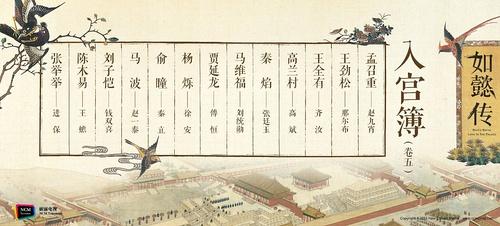 如懿传
入宫簿
(卷五)
孟召重——赵九宵
王劲松——那尔布
王全有——齐汝
高兰村——高斌
秦焰——张廷玉
马维福——刘统勋
贾延龙——傅恒
杨烁——徐安
俞瞳——秦立
马波——赵一泰
刘子恺——钱双喜
陈木易——王蟾
张举举 进保
NCM